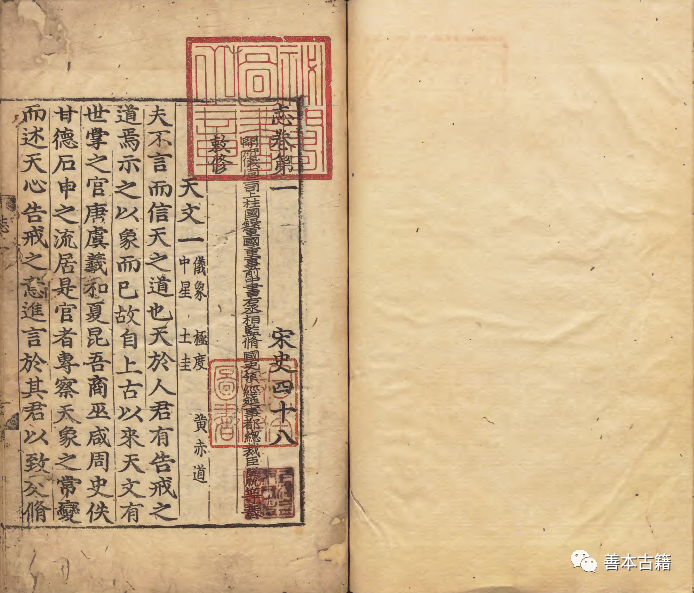 志卷第一 宋史四十八
開府儀同三司上柱國錄軍國重事前中書右丞相監脩國史領經筵事都總裁臣脫脫等
敕修
天文一 儀象 極度 黃赤道
中星 土圭
夫不言而信天之道也天於人君有告戒之
道焉示之以象而已故自上古以來天文有
世掌之官唐虞羲和夏昆吾商巫咸周史佚
甘德石申之流居是官者專察天象之常變
而述天心告戒之意進言於其君以致交脩
圖書
善本古籍